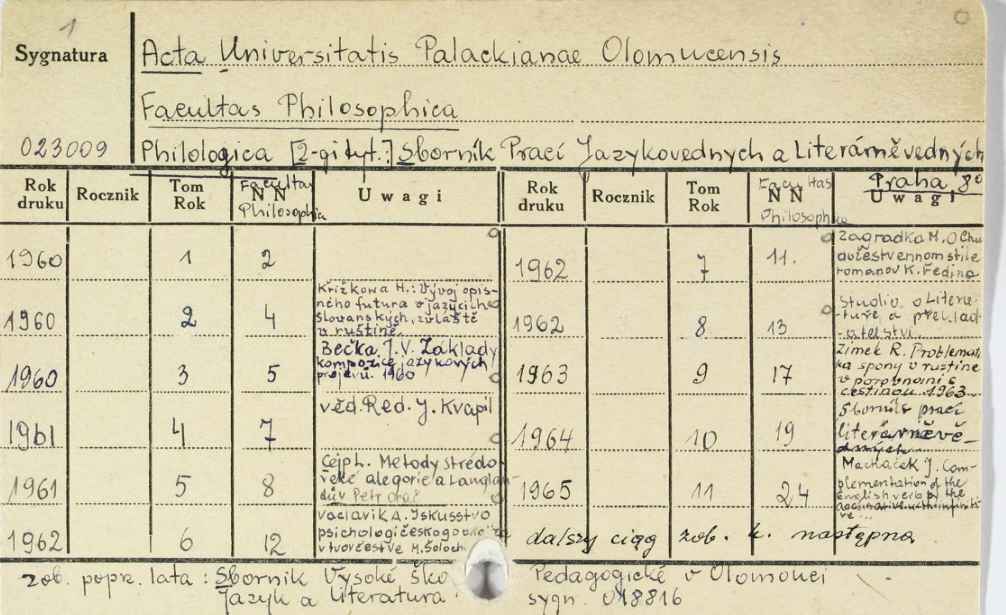 1
Sygnatura
Acta Universitatis Palackianae Olomucensis
Facultas Philosophica
023009
Philologica [2-gi tyt.:] Sborník Prací Jazykovedných a Literárněvedných
Praha, 8°
Rok druku Rocznik Tom Rok Facultas NN Philosophica Uwagi
1960 1 2
1960 2 4 Křížkowa H.: Vývoj opis-
ného futura v jazycích
slovanských, zvláště
v ruštině.
1960 3 5 Bečka J. V. Základy
kompozice jazykových
projevů. 1960
1961 4 7 věd. Red. J. Kvapil
1961 5 8 Cejp L. Metody středo-
věké alegorie a Langlan-
dův Petr oráč
1962 6 12 Vaclavik A. Iskusstvo
psichologičeskogo
v tvorčestve M. Šoloch
Rok druku Rocznik Tom Rok Facultas NN Philosophica Uwagi
1962 7 11. Zagradka M. O Chu
dožestvennom stile
romanov K. Fedina
1962 8 13 Studio o Litera-
ture a překlad-
atelství.
1963 9 17 Zimek R. Problemati
ka spony v ruštině
v porovnání s
češtinou. 1963
1964 10 19 Sborník prací
literárněvě-
dných
1965 11 24 Machaček J. Com-
plementation of the
english verb by the
accusative with infiniti
ve...
dalszy ciąg zob. k. następna
zob. popr. lata: Sborník Vysoké ško Pedagogické v Olomouci
Jazyk a literatura. sygn. 018816